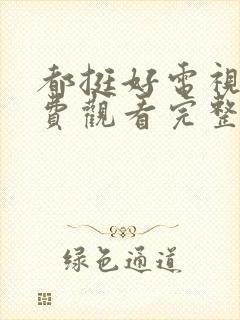 都挺好電視
費觀看完整
绿色通道